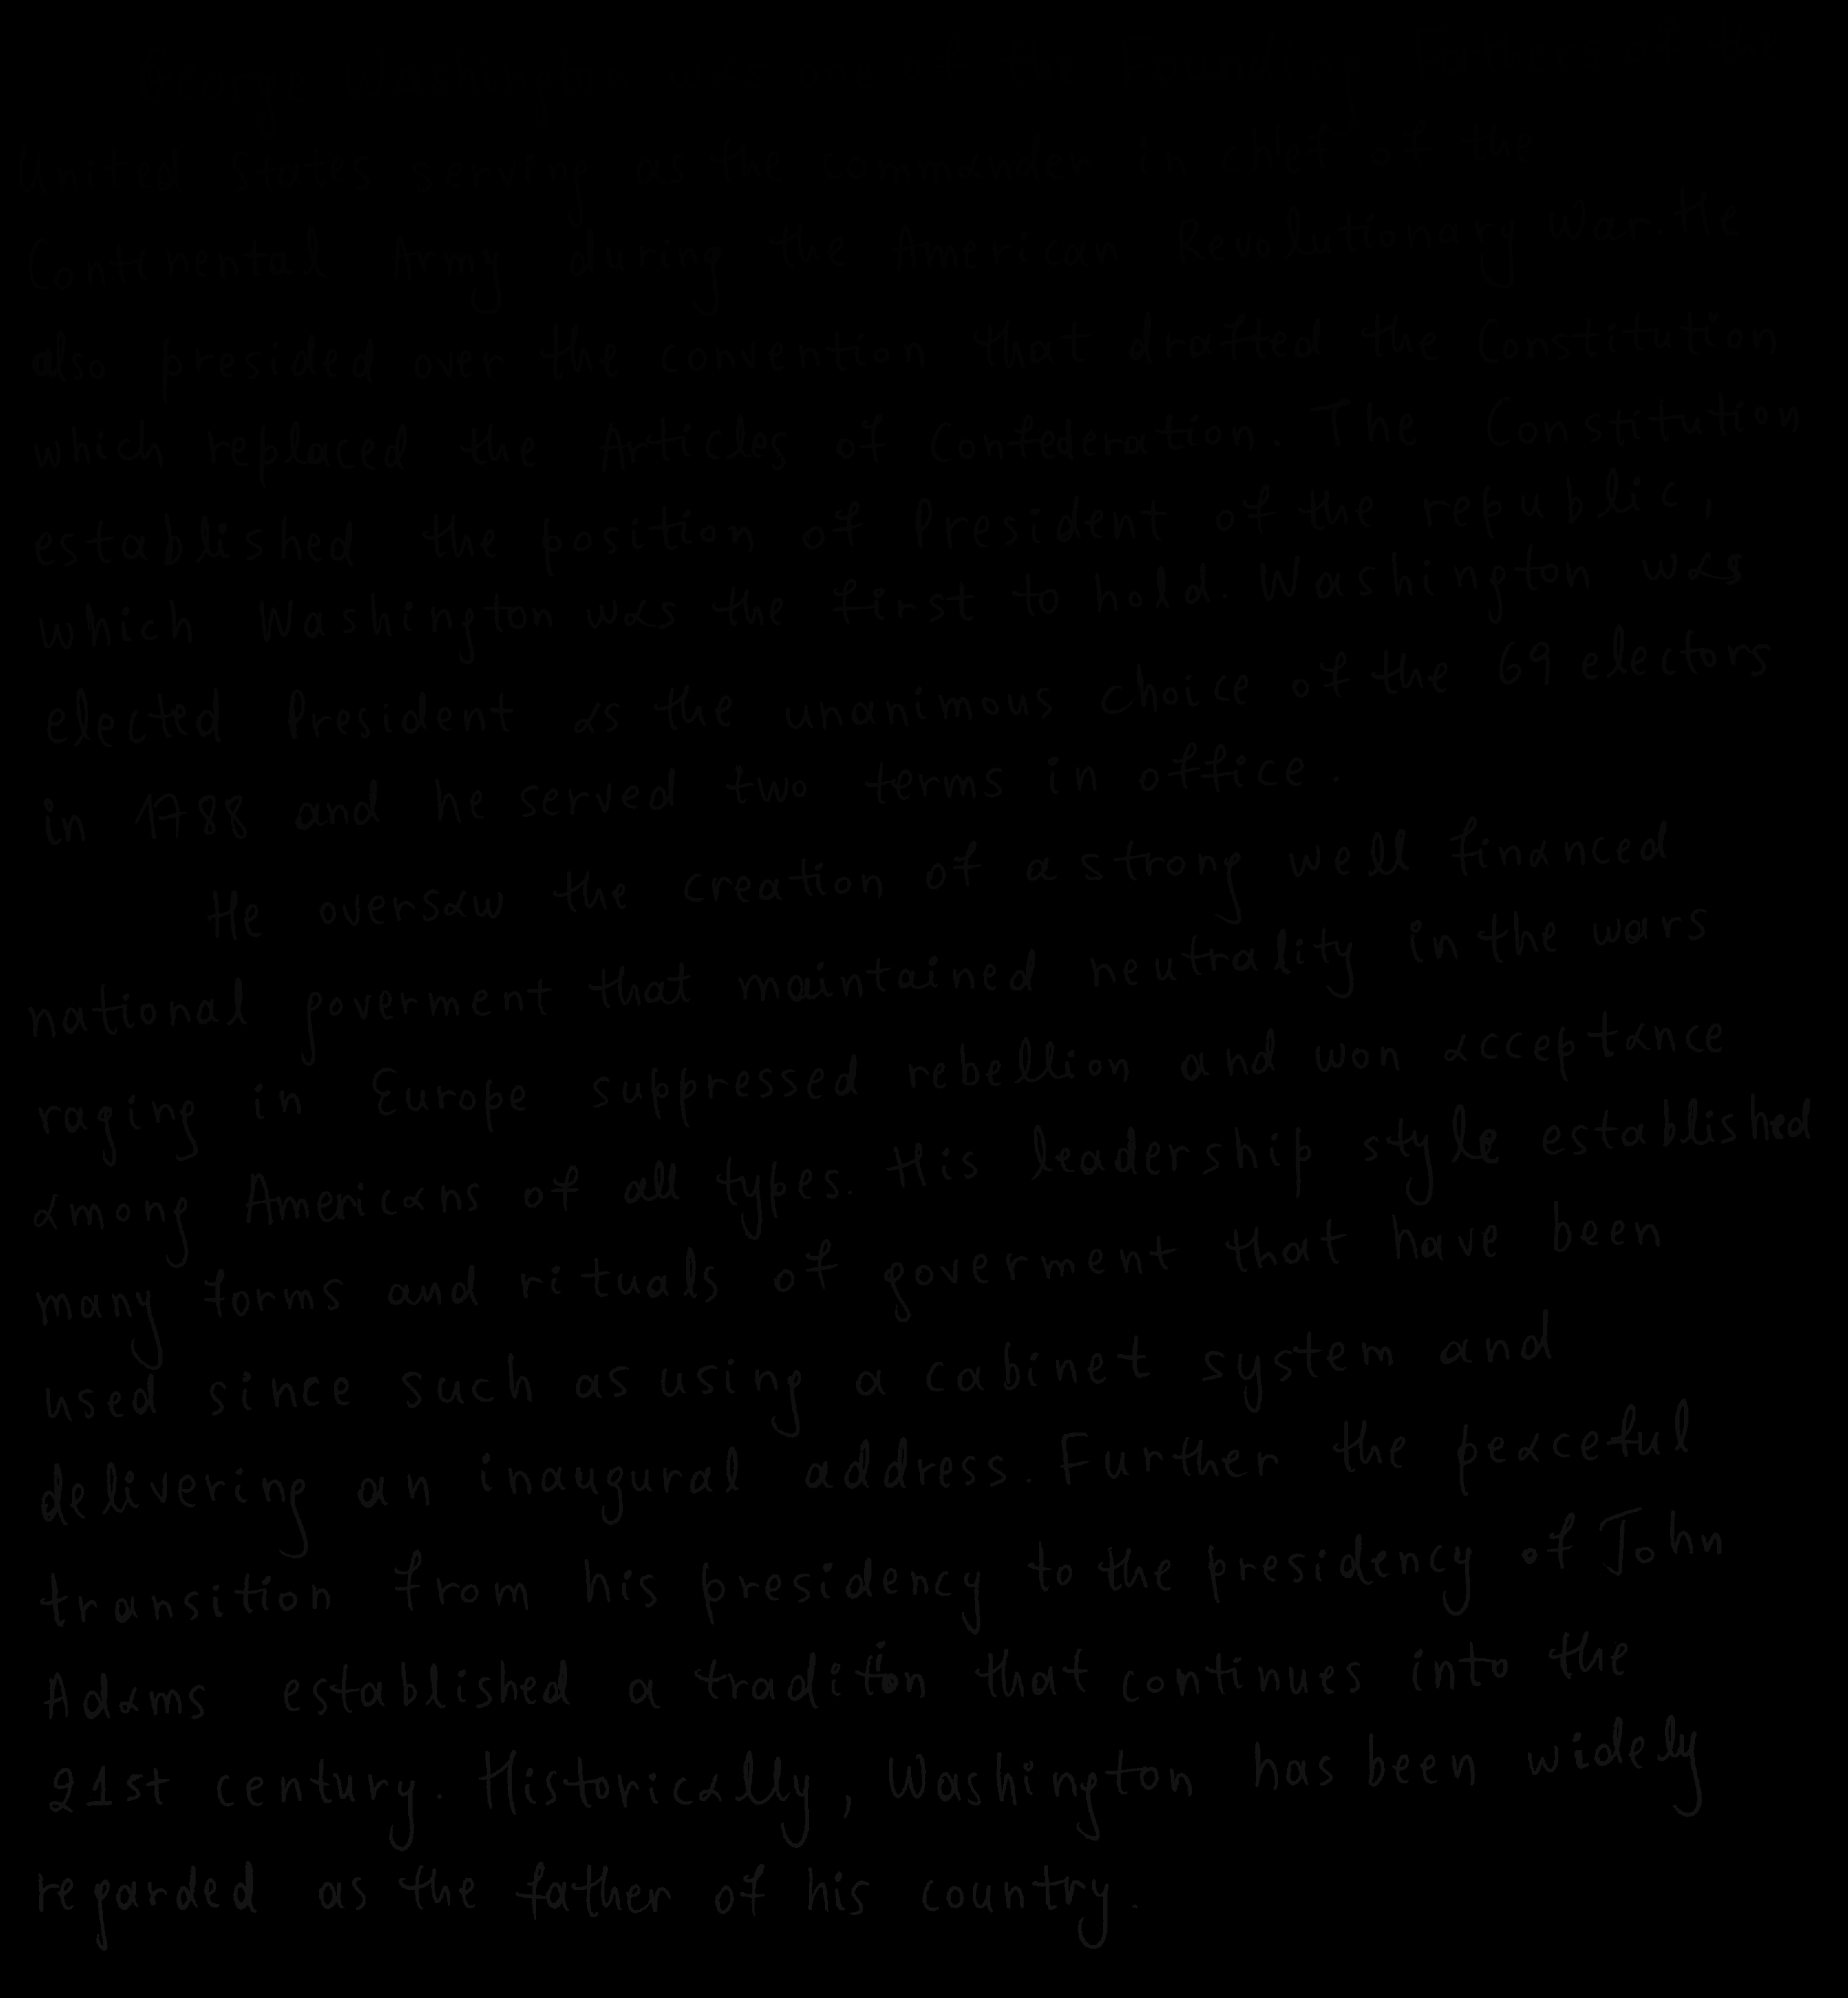 George Washington was one of the Founding Fathers of the
United States serving as the commander in chief of the
Continental Army during the American Revolutionary War. He
also presided over the convention that drafted the Constitution
which replaced the Articles of Confederation. The Constitution
established the position of President of the republic,
which Washington was the first to hold. Washington was
elected President as the unanimous choice of the 69 electors
in 1788 and he served two terms in office.
He oversaw the creation of a strong well financed
national goverment that maintained neutrality in the wars
raging in Europe suppressed rebellion and won acceptance
among Americans of all types. His leadership style established
many forms and rituals of goverment that have been
used since such as using a cabinet system and
delivering an inaugural address. Further the peaceful
transition from his presidency to the presidency of John
Adams established a tradition that continues into the
21st century. Historically, Washington has been widely
regarded as the father of his country.